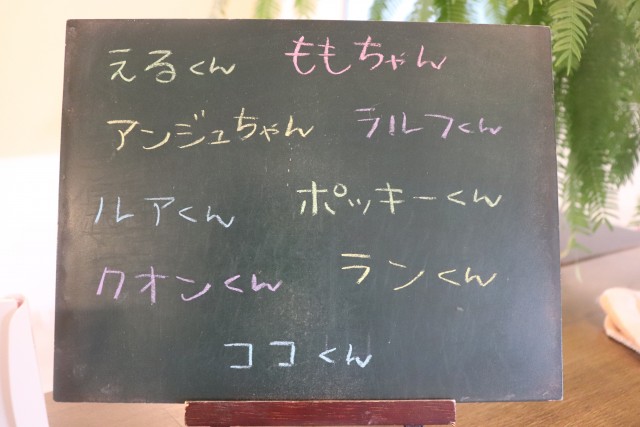 えるくん ももちゃん
アンジュちゃん ラルフくん
ルアくん ポッキーくん
クオンくん ランくん
ココくん